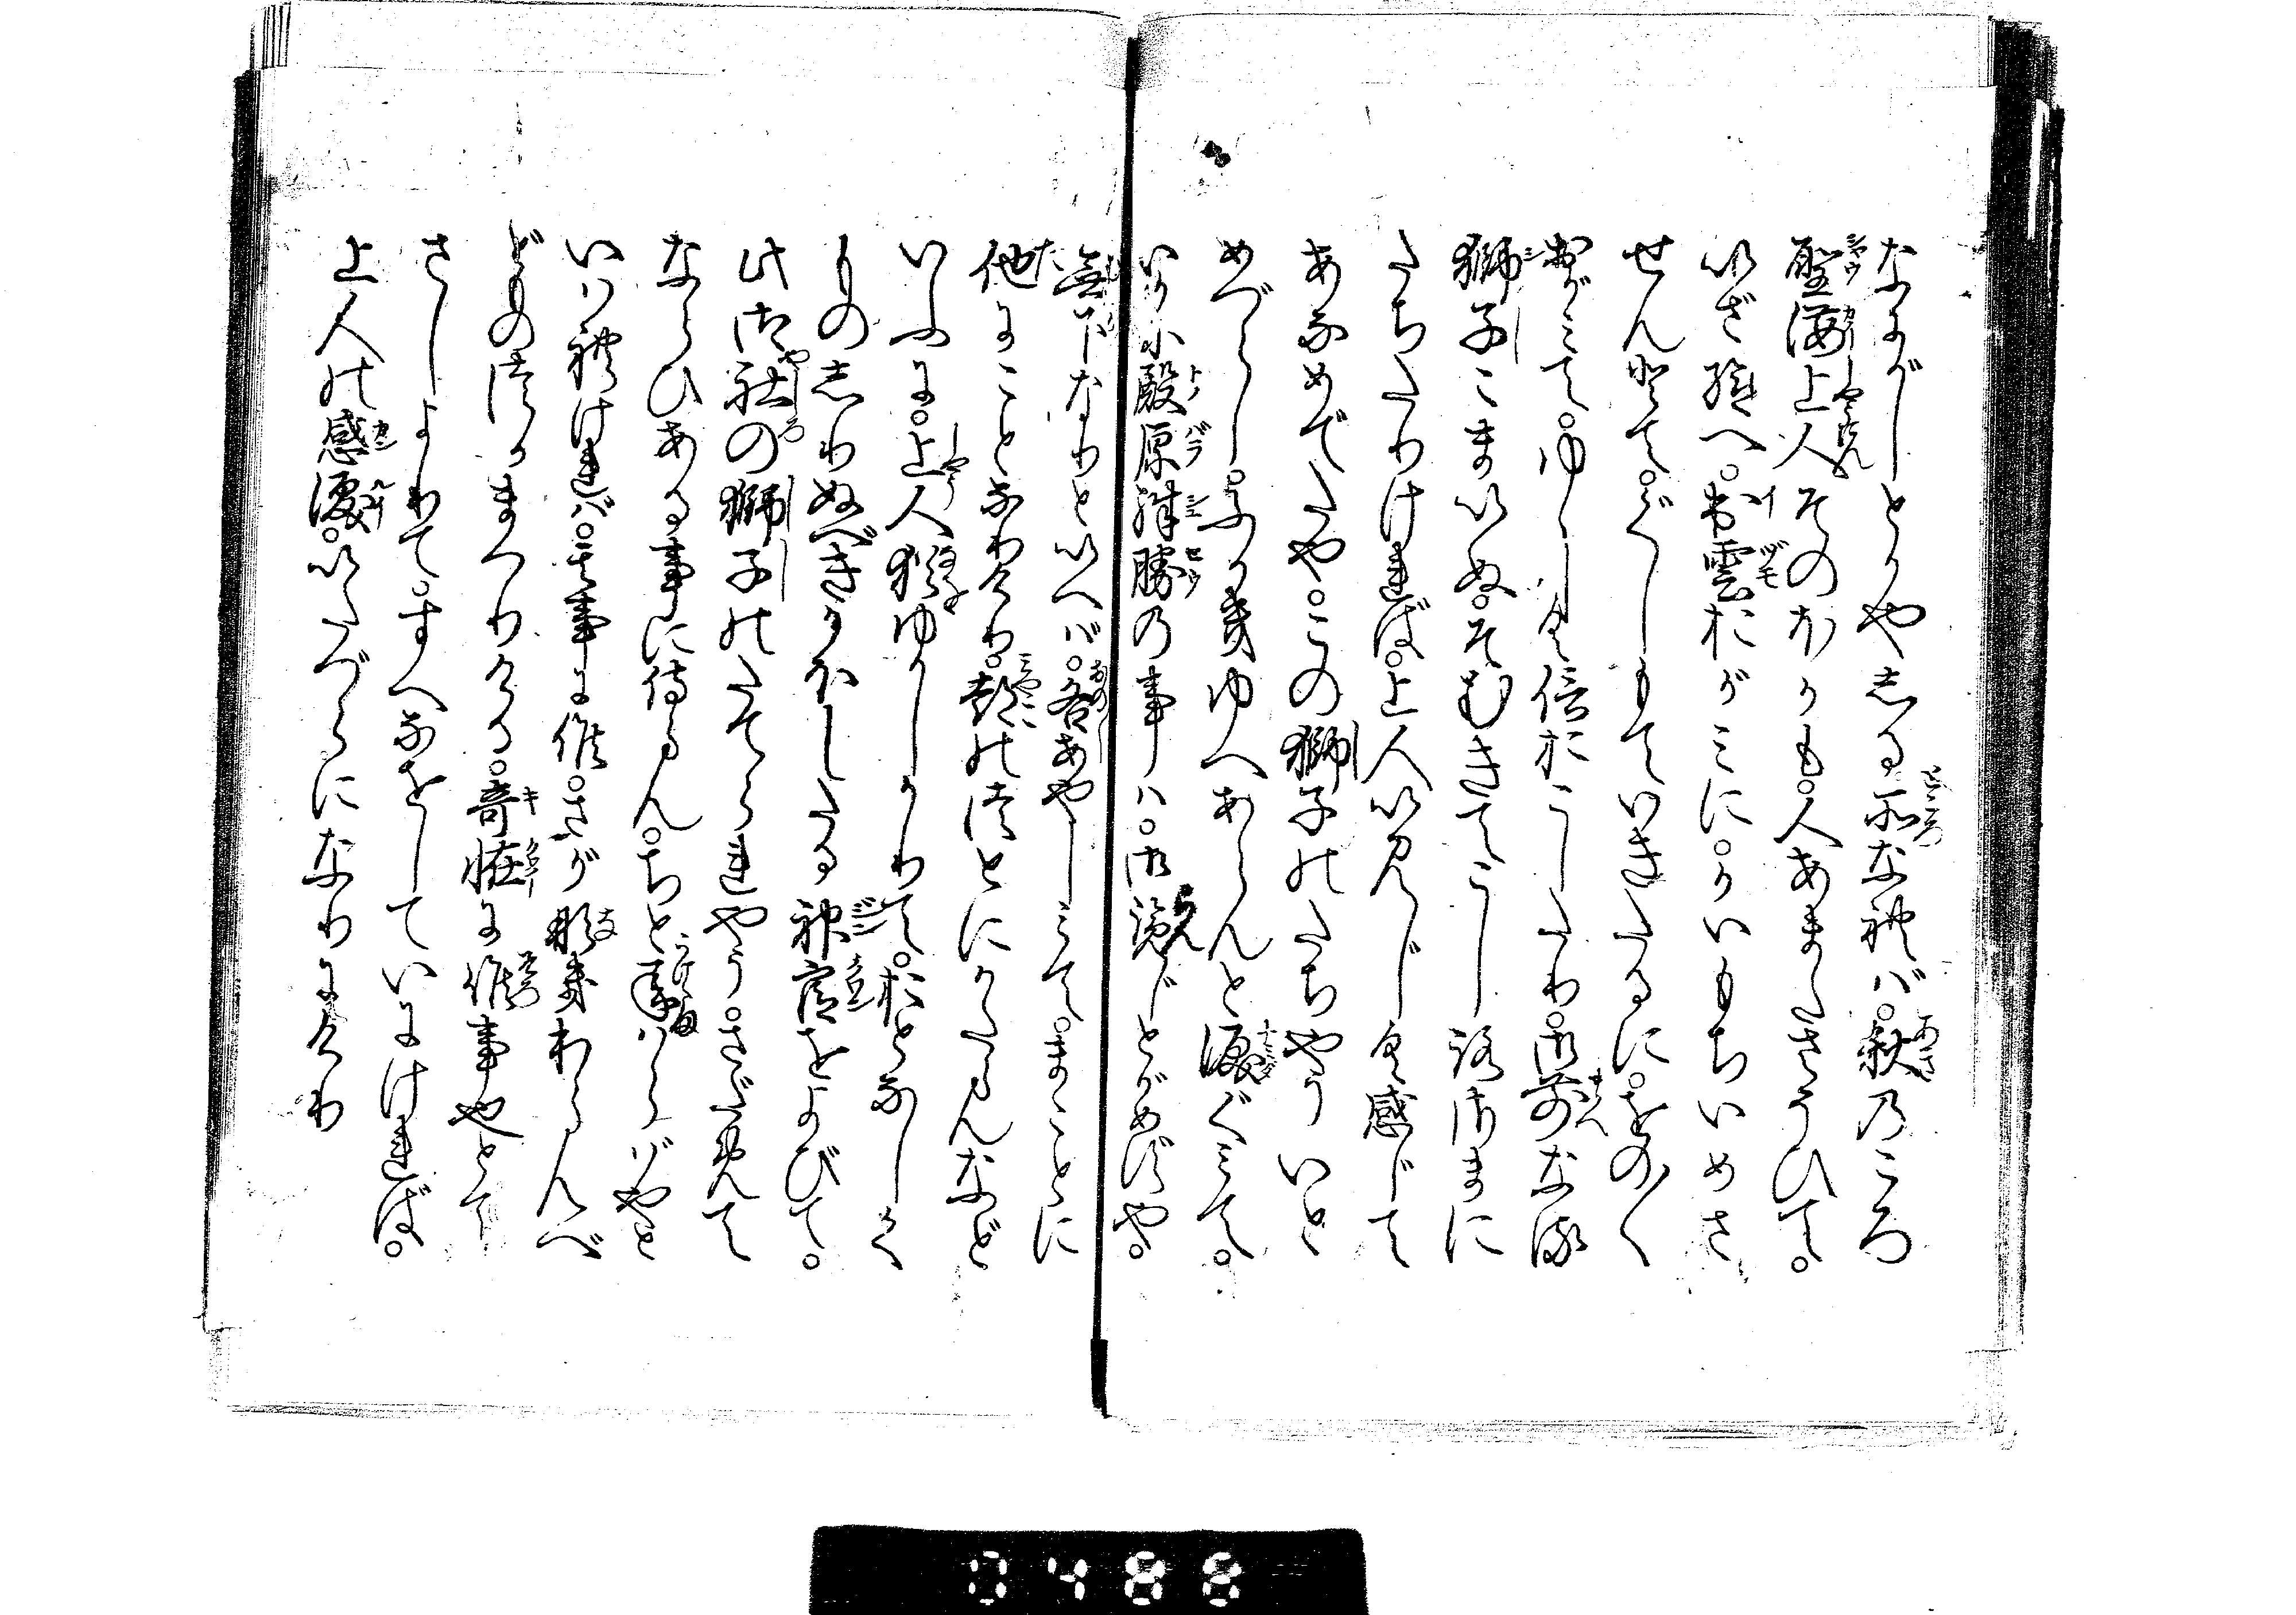 なにがしとかやしる所なれバ。秋乃ころ
聖海上人そのほかも。人あまたさそひて。
いざ給へ。出雲おがミに。かいもちいめさ
せんとて。ぐしもていきたるに。をの〳〵
おがミて。ゆゝしく信おこしたり。御前なる
獅子こまいぬ。そむきてうしろさまに
たちたりければ。上人いみじく感じて
あなめでたや。この獅子のたちやういと
めづらし。ふかき故ゆへあらんと涙ぐミて。
いかに殿原殊勝乃事ハ。御覧じとがめずや。
無下なりといへバ。各あやしミて。まことに
他にことなりけり。都のつとにかたらんなど
いふに。上人猶ゆかしがりて。おとなしく
ものしりぬべきかほしたる神官をよびて。
此御社の獅子のたてられやう。さだめて
ならひある事に侍らん。ちと承ハらバやと
いはれければ。其事に候。さがなきわらんべ
どものつかまつりける。奇怪に候事也とて
さしよりて。すへなをしていにければ。
上人の感涙。いたづらになりにけり
0488